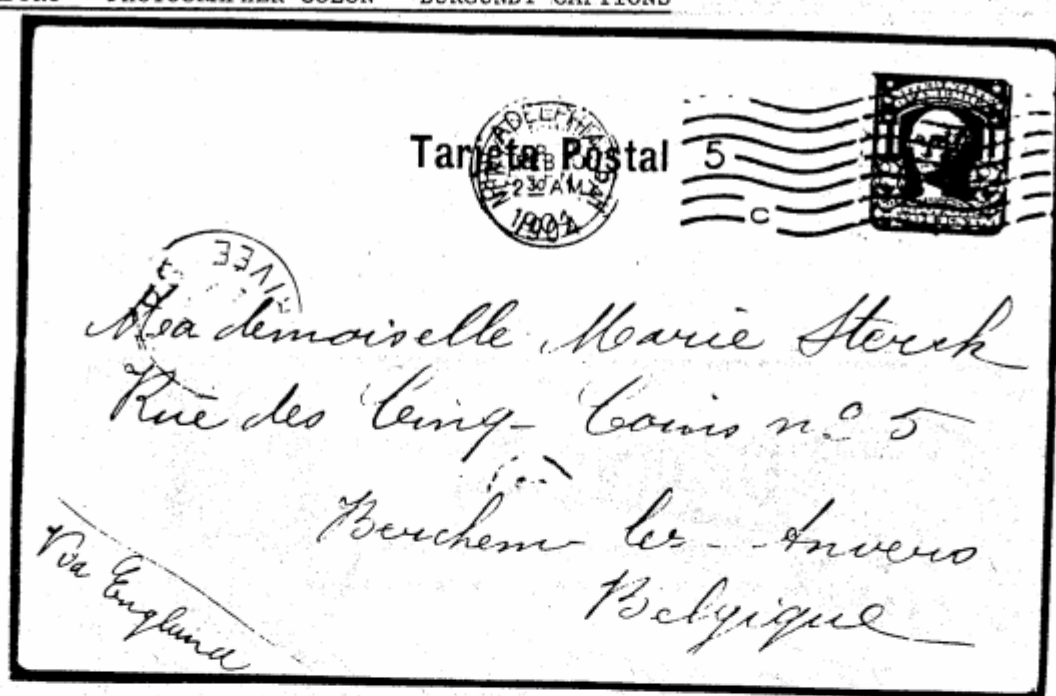 PHOTOGRAPHER COLON BURGUNDY CAPTIONS
Tarjeta Postal
PHILADELPHIA
FEB
2 30 AM
1904
5
C
Mademoiselle Marie Sterck
Rue des Cinq-Coins no 5
Berchem les-Anvers
Belgique
Via England